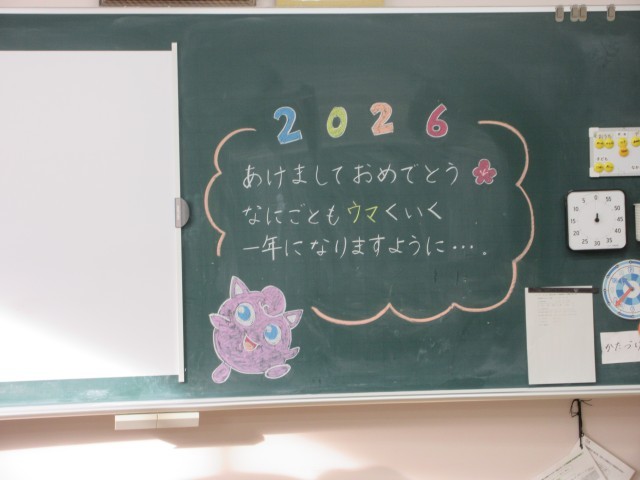 2026
あけましておめでとう
なにごともウマくいく
一年になりますように…。
5 0 55
10 50
15 45
20 40
25 30 35
かたづけ